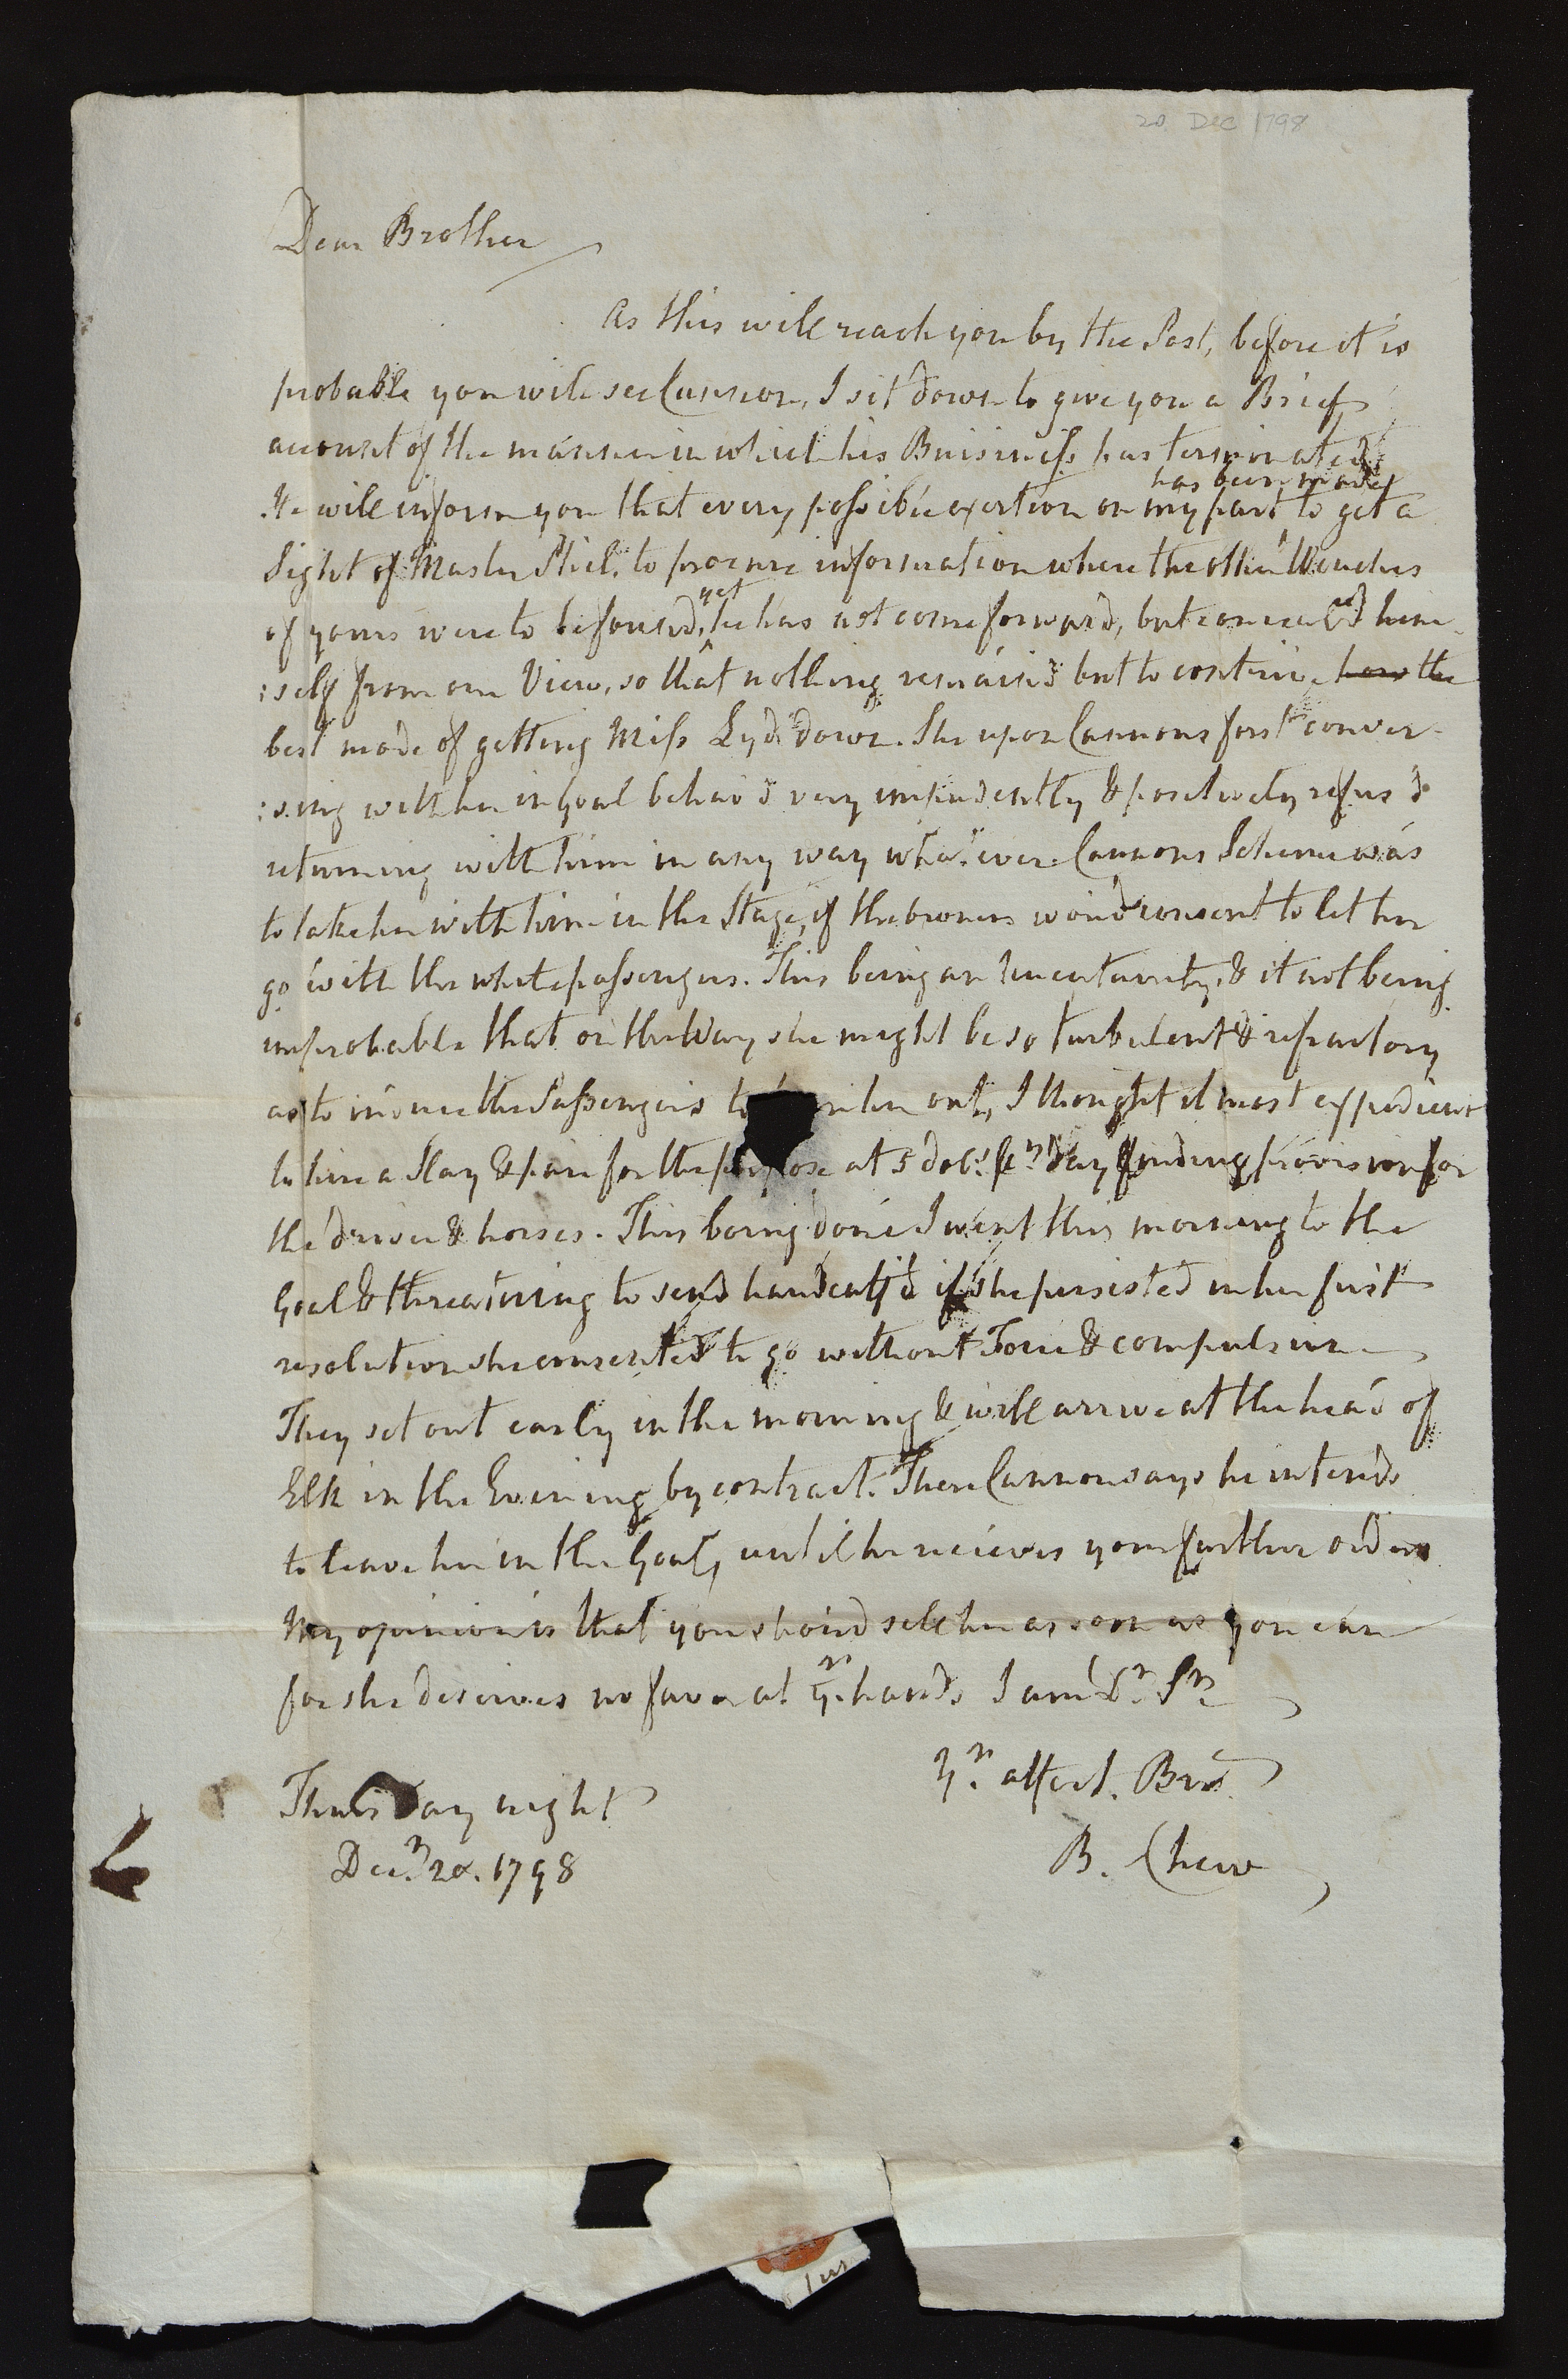 20 Dec 1798
Dear Brother
As this will reach you by the Post, before it is
probable you will see Cannon, I sit down to give you a Brief
account of the manner in which his Buisiness has terminated
has been made
He will inform you that every possible exertion on my part to get a
Sight of Master Phil. to procure information where the other Wenches
yet
of yours were to be found, he has not come forward, but conceal'd him-
:self from our View, so that nothing remain'd but to contrive how the
best mode of getting Miss Lyd. down. She upon Cannons first conver-
:sing with her in Goal behav'd very impudently & positively refus'd
returning with him in any way whatever. Cannons Scheme was
to take her with him in the Stage, if the owners wou'd consent to let her
go with the white passengers. This being an Uncertainty, & it not being
improbable that on the Way she might be so turbulent & refractory
as to induce the Passengers to turn her out, I thought it most expedient
to hire a Slay & pair for the purpose at 5 dolls. pr. Day finding provision for
the driver & horses. This being done I went this morning to the
Goal & threatning to send handcuff'd if she persisted in her first
resolution she consented to go without Force & compulsion
They set out early in the morning & will arrive at the head of
Elk in the Evening by contract. There Cannon says he intends
to leave her in the Goal, until he recieves your further orders
My opinion is that you shou'd sell her as soon as you can
for she deserves no favor at yr. hands I am Dr. Sr.
Yr. affect. Bro.
B. Chew
Thursday night
Decr. 20. 1798